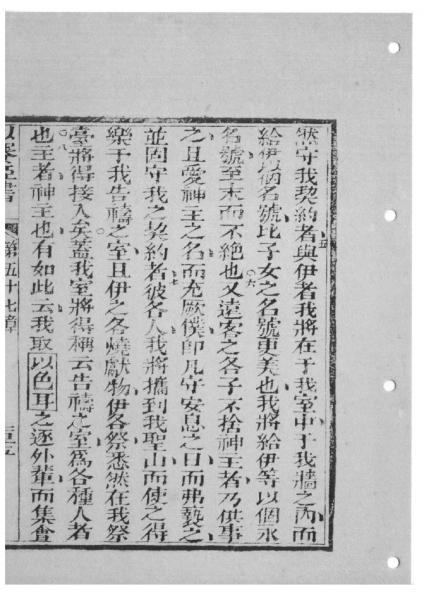 然守我契約者與伊者我將在于我室中于我牆之內而
給伊以個名號比子女之名號更美也我將給伊等以個永
名號至末而不絶也又遠客之各子不捨神主者乃供事
之且愛神主之名而充厥僕即凡守安息之日而弗褻之
並固守我之契約者彼各人我將攜到我聖山而使之得
樂于我告禱之室且伊之各燒獻物伊各祭悉然在我祭
臺將得接入矣蓋我室將得稱云告禱之室爲各種人者
也主者神主也有如此云我取以色耳之逐外輩而集會
書 第五十七章
五
六
七
八